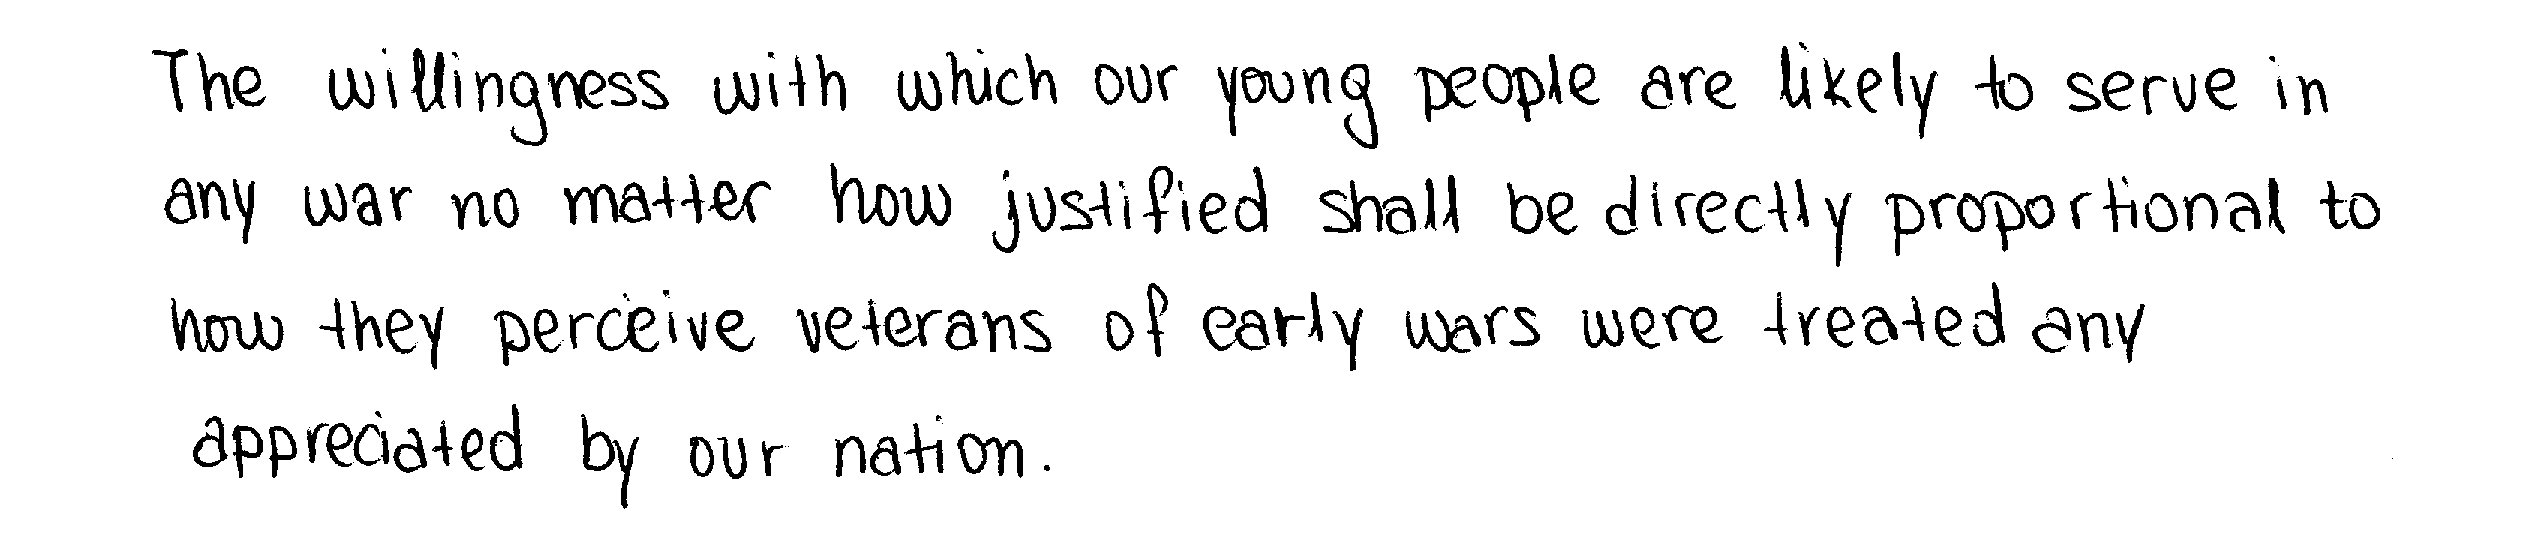 The willingness with which our young people are likely to serve in
any war no matter how justified shall be directly proportional to
how they perceive veterans of early wars were treated any
appreciated by our nation.